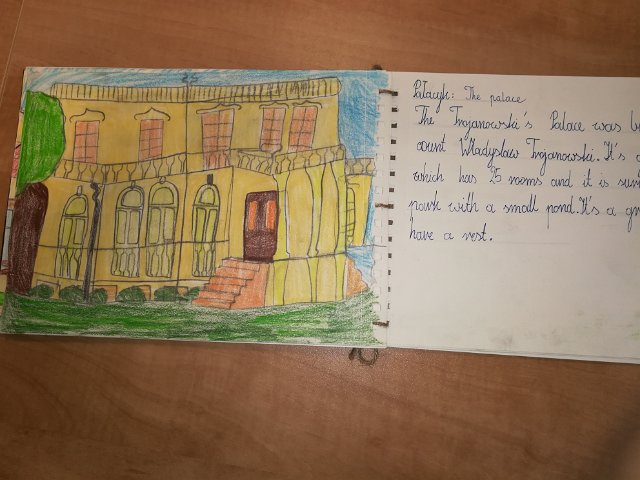 Pałacyk: The palace
The Trojanowski's Palace was
count Władysław Trojanowski. It's
which has 25 rooms and it is
park with a small pond. It's a
have a rest.